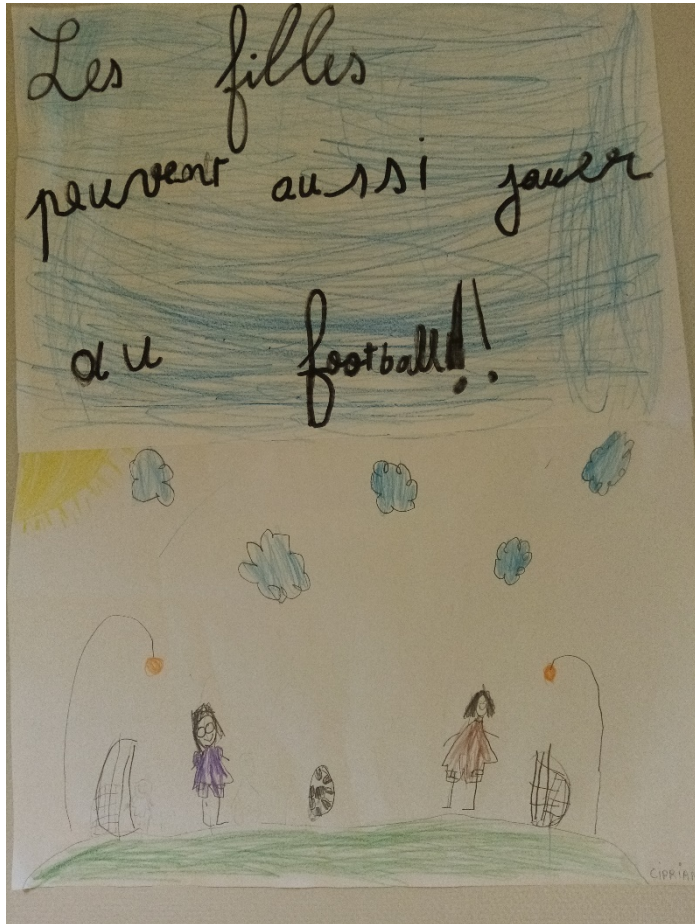 Les filles
peuvent aussi jouer
au football!!